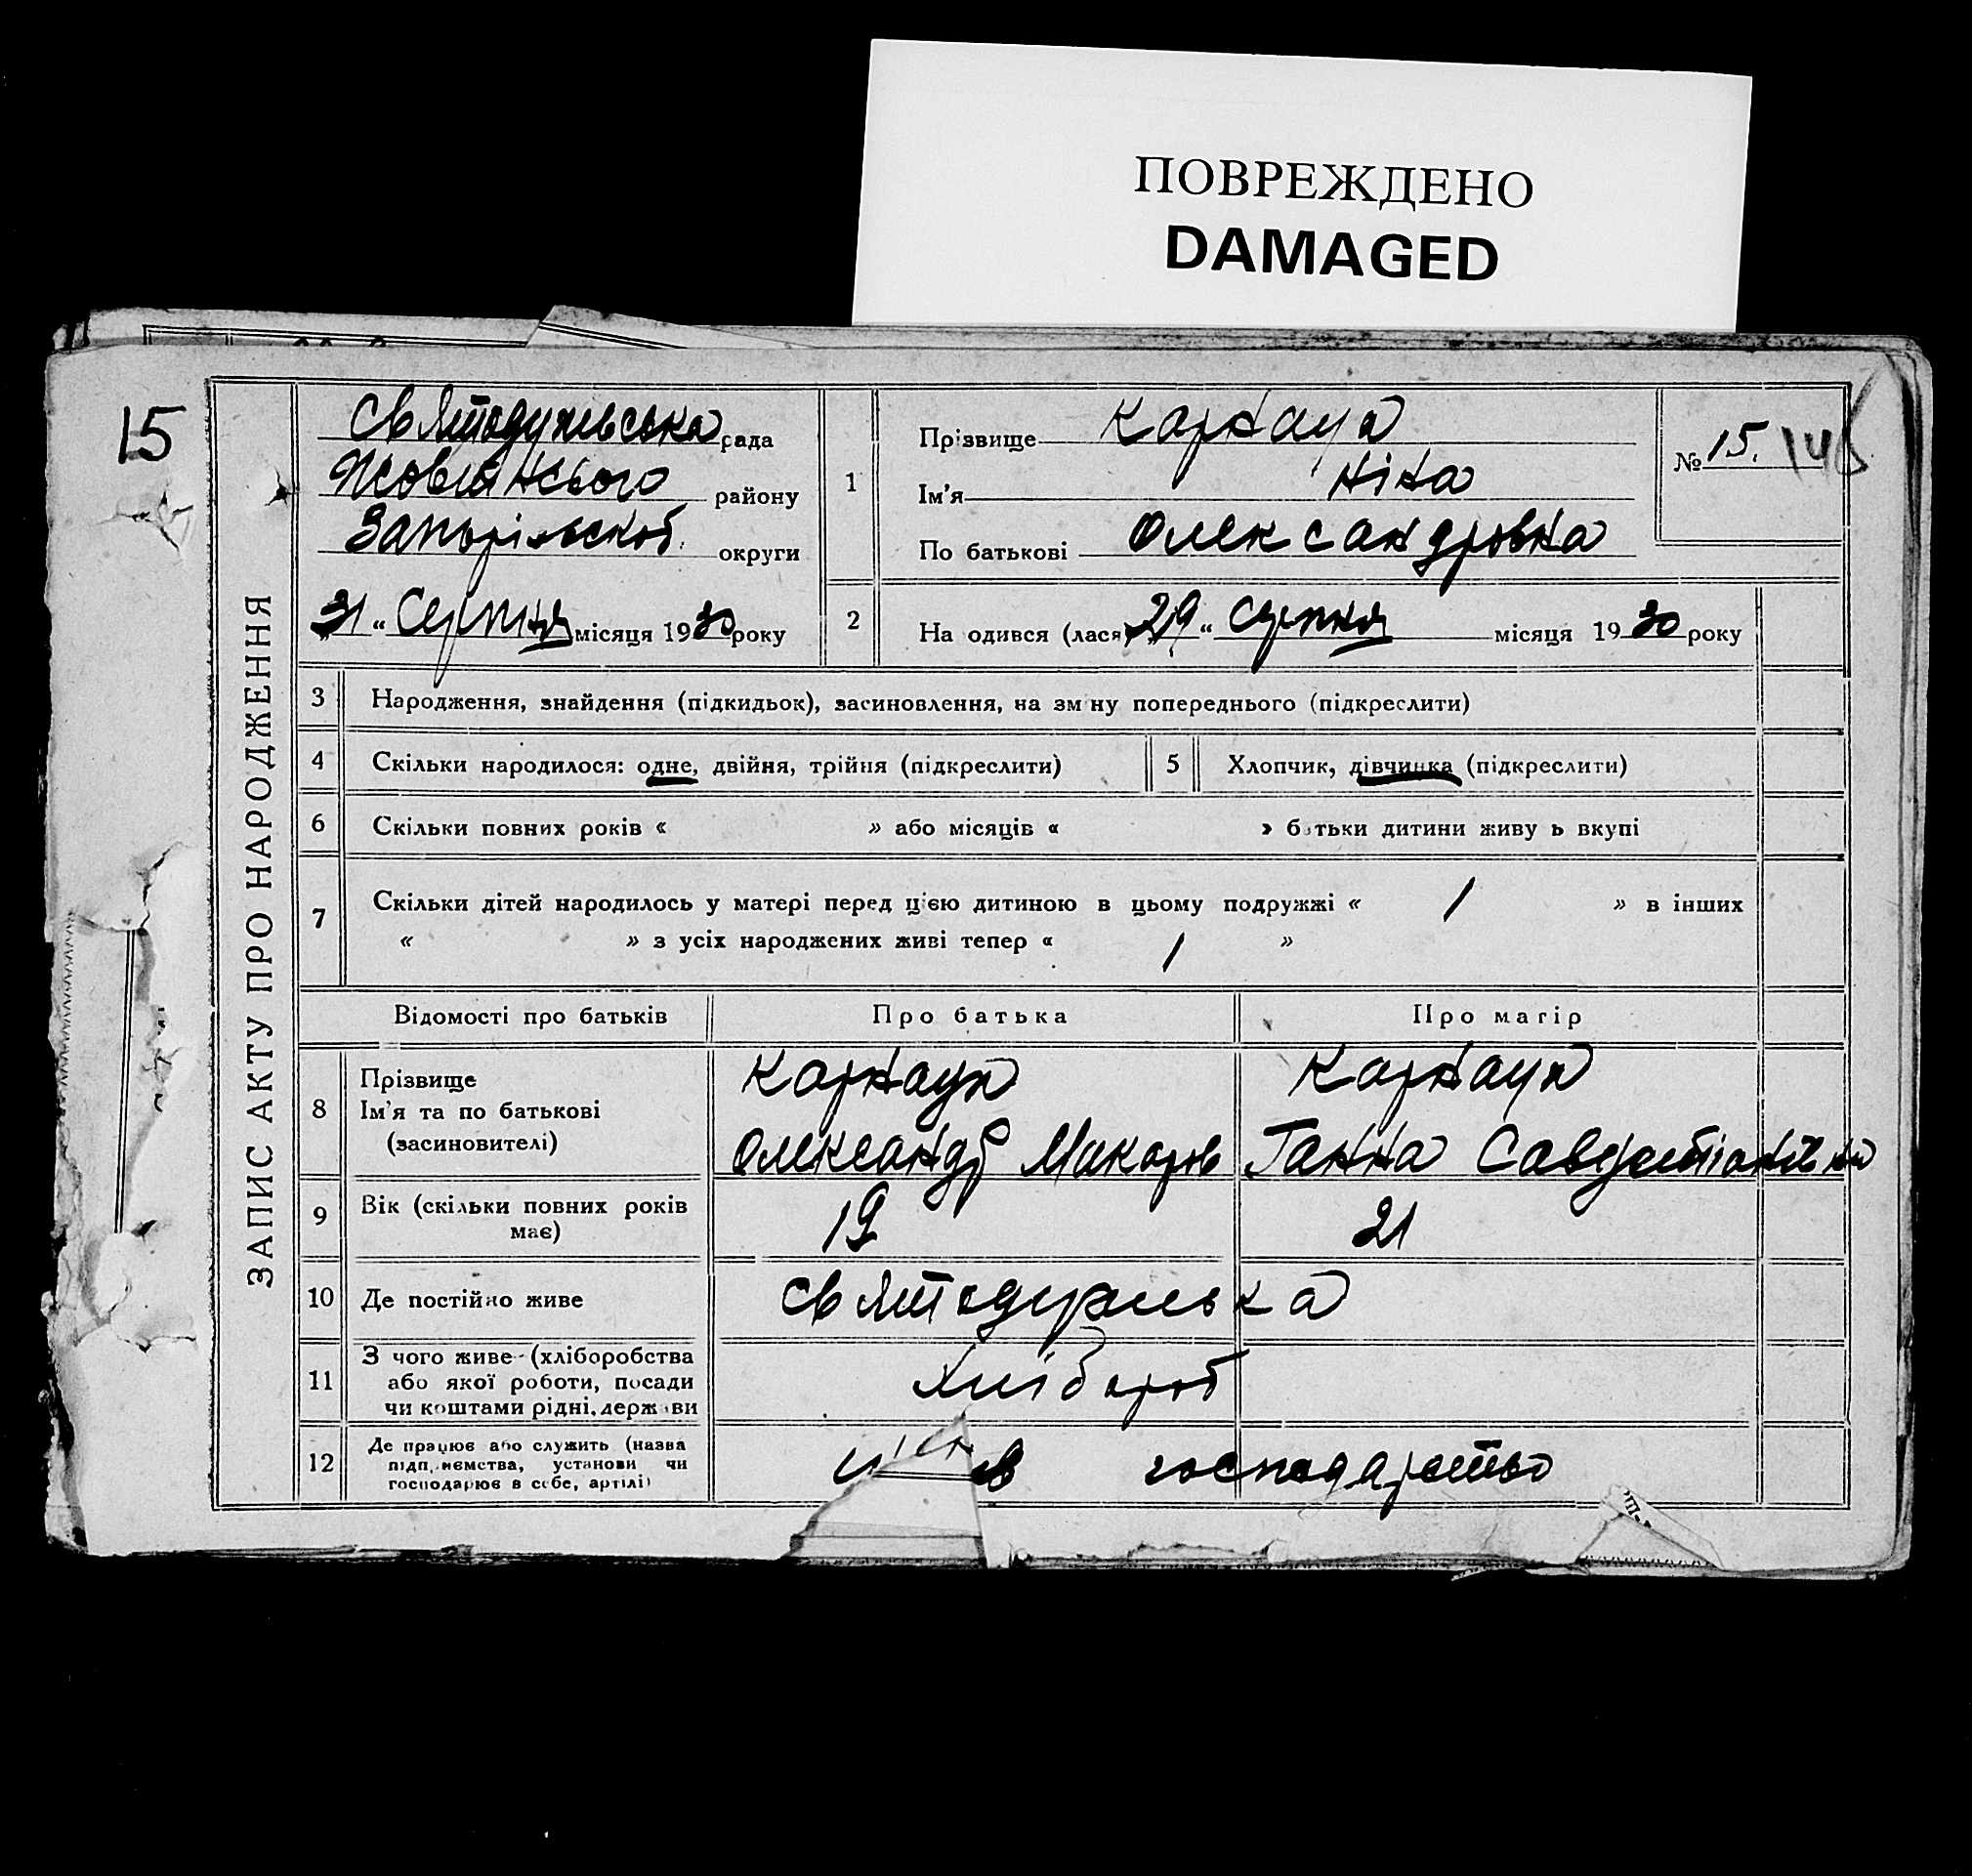 ПОВРЕЖДЕНО
DAMAGED
15
ЗАПИС АКТУ ПРО НАРОДЖЕННЯ
рада
району
округи
31 “ Серпня місяця 1930 року
1
Прізвище Карнаух
Ім'я Ніна
По батькові Олександровна
№ 15.
2
На одився (лася) 29 “ Серпня місяця 1930 року
3 Народження, знайдення (підкидьок), засиновлення, на зм ну попереднього (підкреслити)
4 Скільки народилося: одне, двійня, трійня (підкреслити)
5 Хлопчик, дівчинка (підкреслити)
6 Скільки повних років « » або місяців « » батьки дитини живу ь вкупі
7 Скільки дітей народилось у матері перед цією дитиною в цьому подружжі « 1 » в інших
« » з усіх народжених живі тепер « 1 »
Відомості про батьків Про батька Про матір
8 Прізвище Карнаух Карнаух
Ім'я та по батькові
(засиновителі) Олександр Макаров Ганна
9 Вік (скільки повних років 19 21
має)
10 Де постійно живе
11 З чого живе (хліборобства
або якої роботи, посади Хлібороб
чи коштами рідні, держ ви
12 Де працює або служить (назва
підп иємства, установи чи господарство
господарює в себе, артілі)